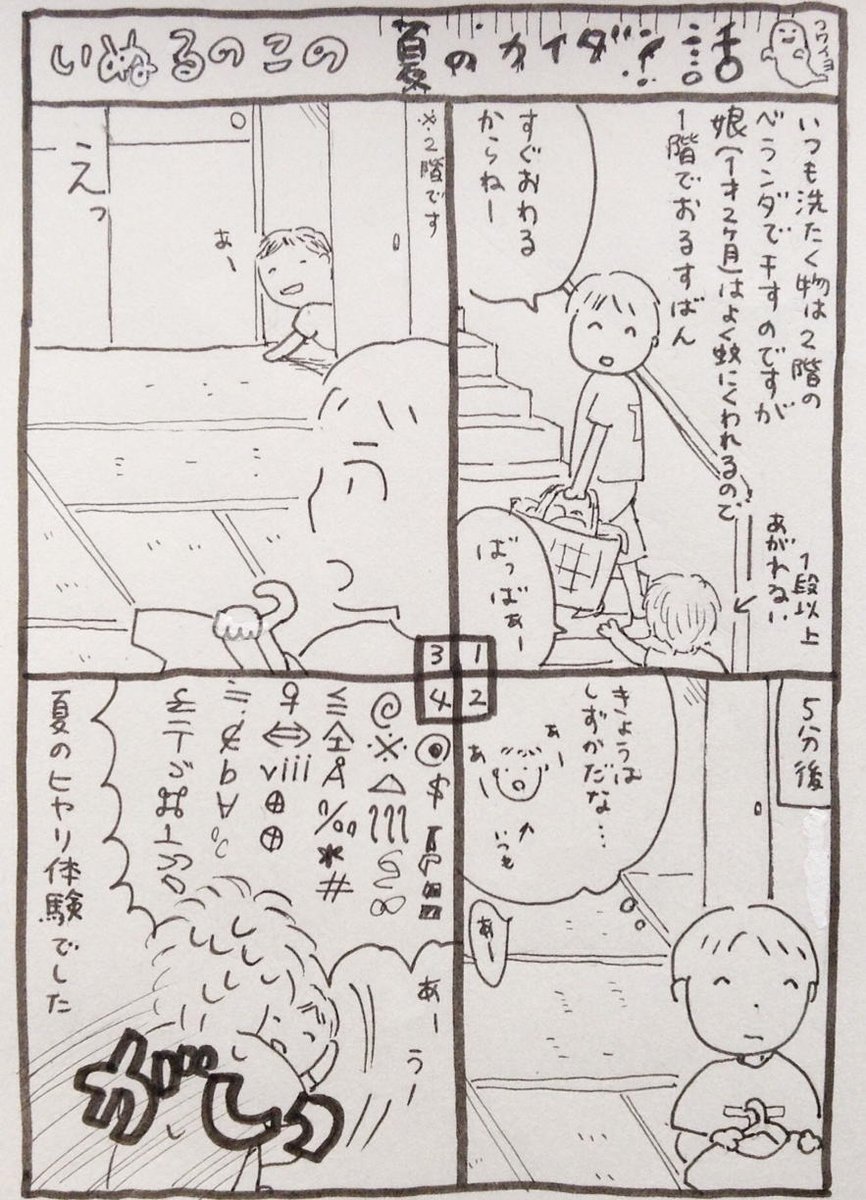 いぬるのこの 夏のカイダン話
コワイヨ
いつも洗たく物は2階の
ベランダで干すのですが
娘(1才2ヶ月)はよく蚊にくわれるので
1階でおるすばん
すぐおわる
からねー
1段以上
あがれない
ばっばぁー
1
5分後
きょうは
しずかだな…
あー
あー
いつも
あー
2
※2階です
あー
えっ
3
あー うー
がしっ
夏のヒヤリ体験でした
4